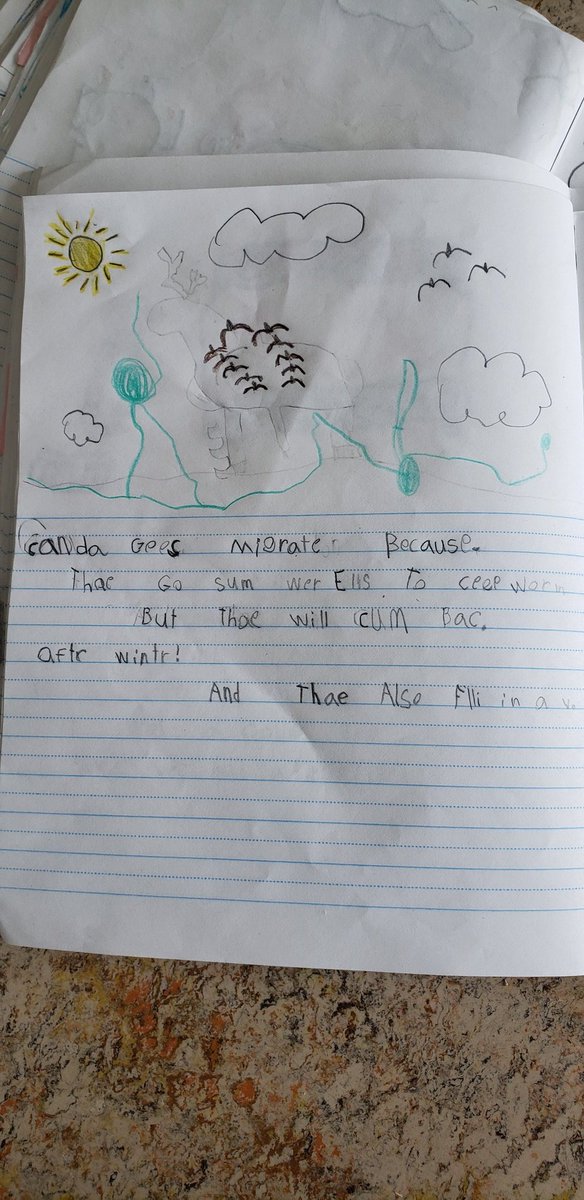 Canda Gees migrate Because.
Thae Go sum wer Ells To ceep worm
But Thae will CUM Bac.
aftr wintr!
And Thae Also Flli in a v.